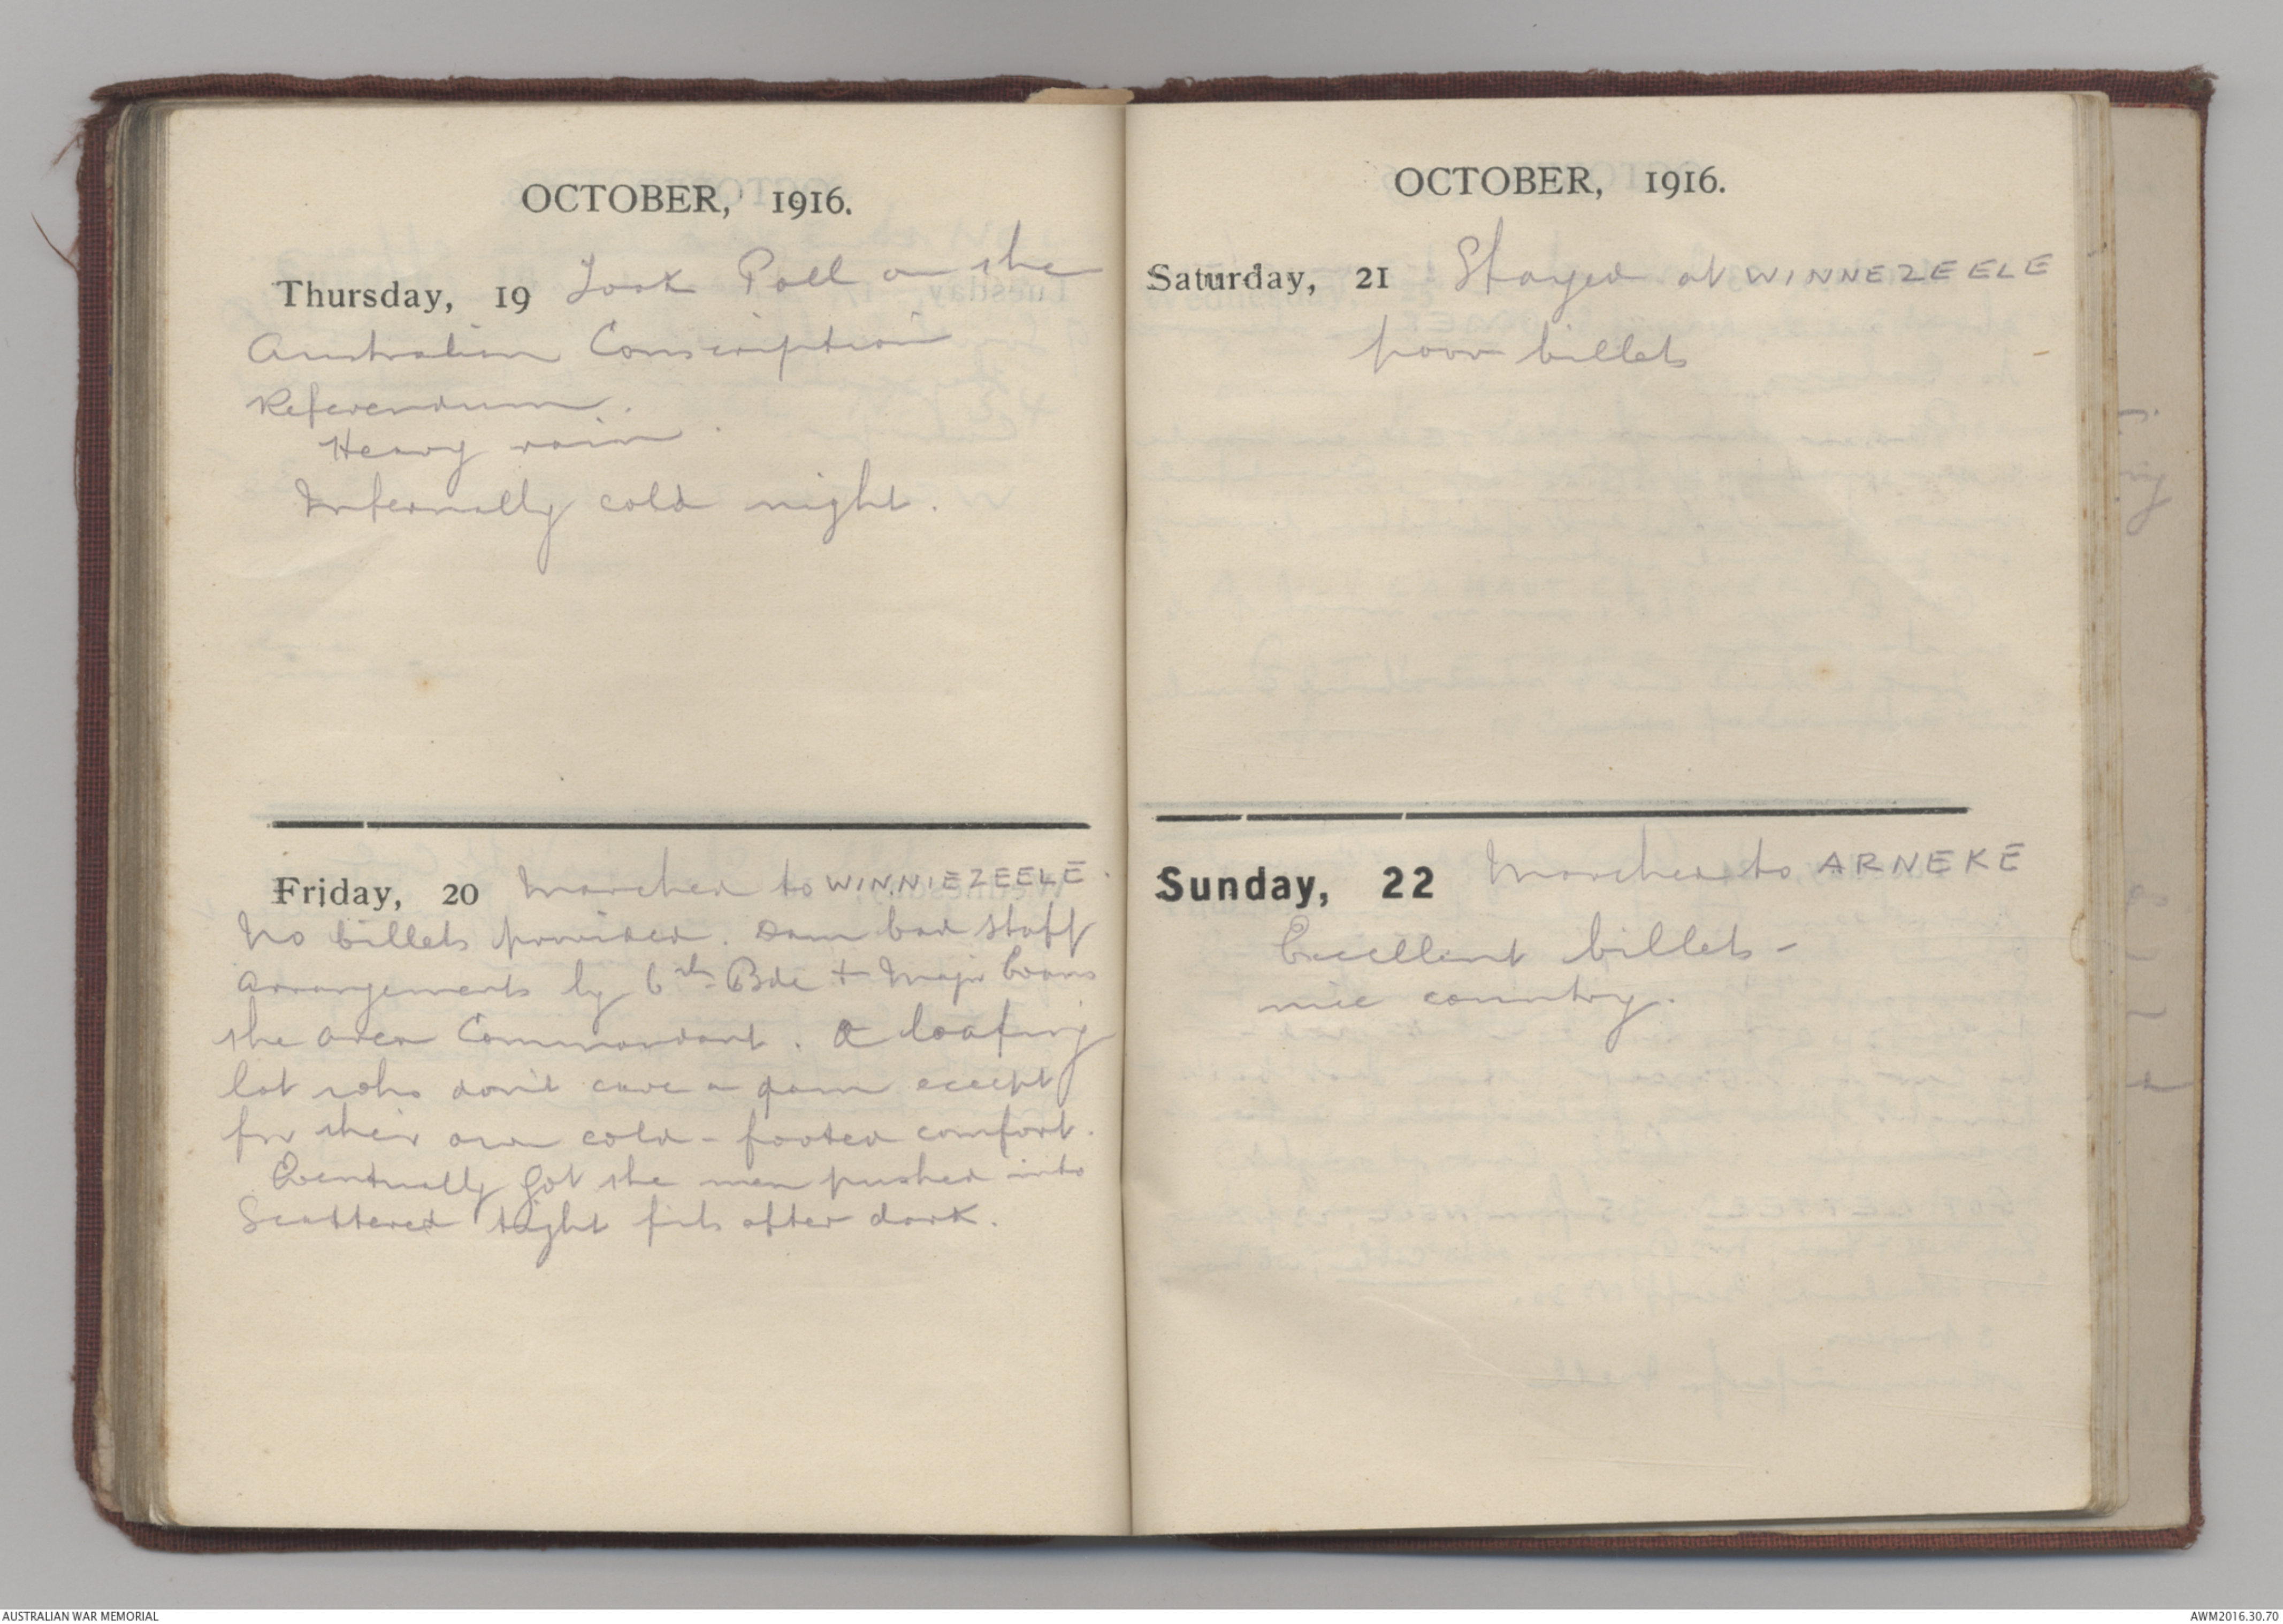 OCTOBER, 1916.
Thursday, 19 Took Poll on the
Australian Conscription
Referendum.
Heavy rain.
Infernally cold night.
Friday, 20 Marched to WINNIEZEELE.
No billets provided. Dam bad staff
arrangements by 6th Bde + Major Evans
the Area Commandant. A loafing
lot who don't care a dam except
for their own cold-footed comfort.
Eventually got the men pushed into
Scattered tight fits after dark.
OCTOBER, 1916.
Saturday, 21 Stayed at WINNEZEELE
poor billets
Sunday, 22 Marched to ARNEKE
Excellent billets -
nice country.
AUSTRALIAN WAR MEMORIAL
AWM2016.30.70